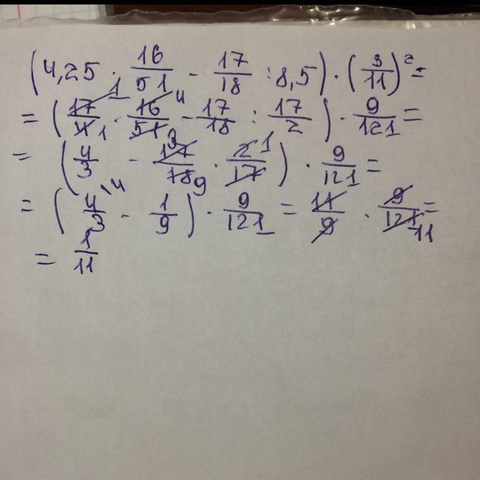 (4,25 · 16/51 - 17/18 : 8,5) · (3/11)² =
= (17/4 · 16/51 - 17/18 : 17/2) · 9/121 =
= (4/3 - 17/18 · 2/17) · 9/121 =
= (4/3 - 1/9) · 9/121 = 11/9 · 9/121 =
= 1/11